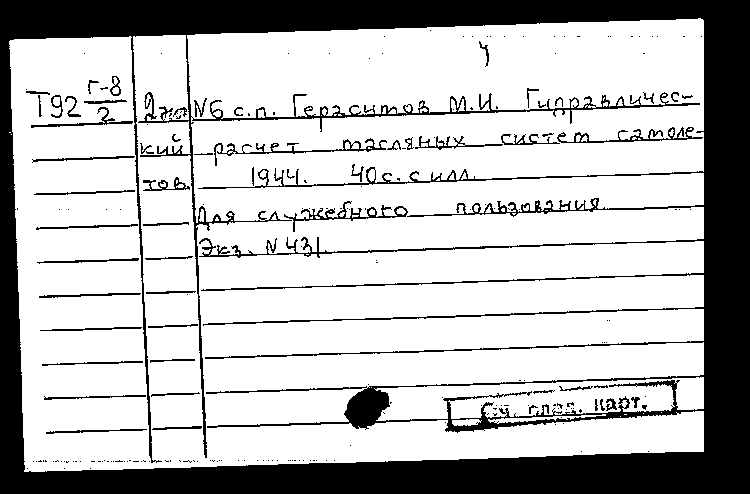 4
Т92 Г-8/2 2 экз N6 с.п. Герасимов М.И. Гидравличес-
кий расчет масляных систем самоле-
тов. 1944. 40 с. с илл.
Для служебного пользования
Экз. N 431.
См. след. карт.